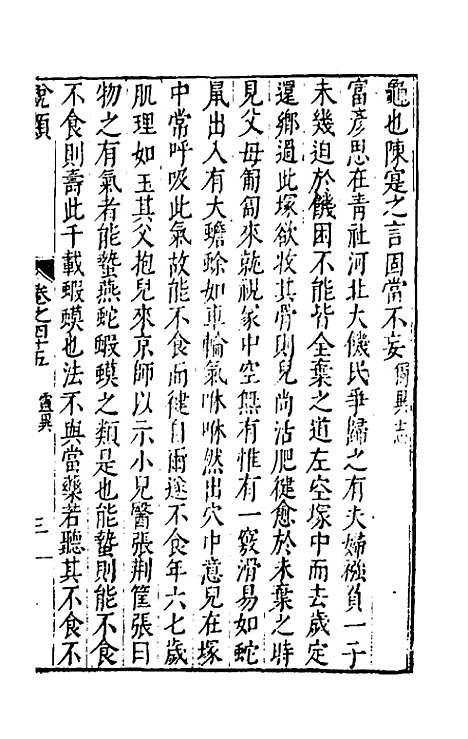 龜也陳寔之言固當不妄
富彥思在青社河北大饑民爭歸之有夫婦襁負一子
未幾迫於饑困不能皆全棄之道左空塚中而去歲定
還鄉過此塚欲收其骨則兒尚活肥健愈於未棄之時
見父母匍匐來就視冢中空無有惟有一竅滑易如蛇
鼠出入有大蟾蜍如車輪氣咻咻然出穴中意兒在塚
中常呼吸此氣故能不食而健自爾遂不食年六七歲
肌理如玉其父抱兒來京師以示小兒醫張荆筐張曰
物之有氣者能蟄燕蛇蝦蟆之類是也能蟄則能不食
不食則壽此千載蝦蟆也法不與當藥若聽其不食不
說類
卷之四十五
蟲異
三